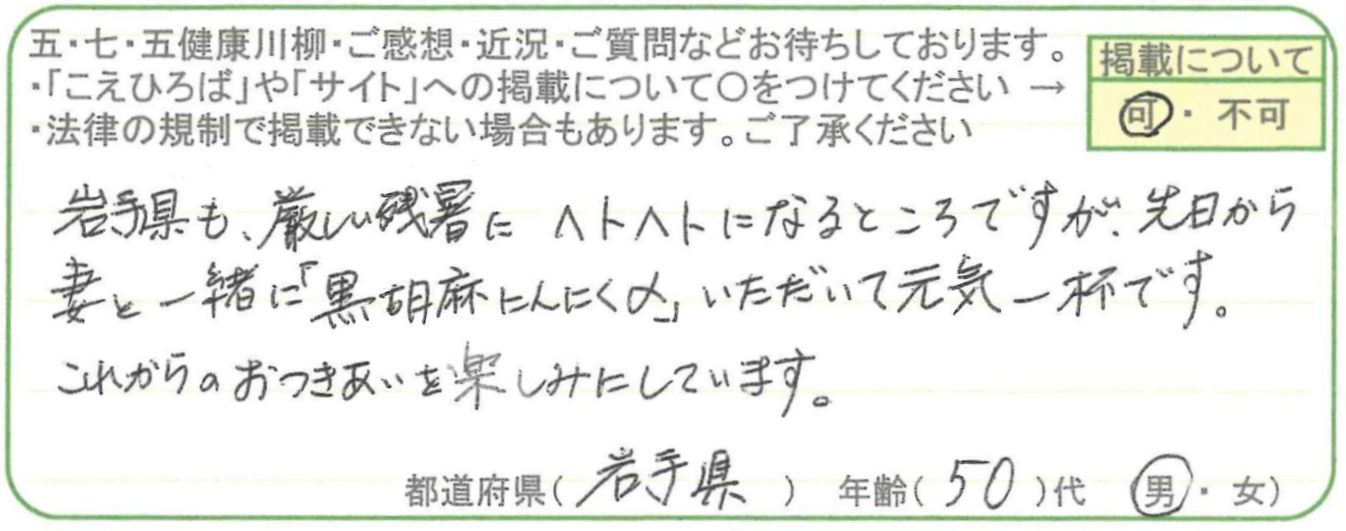 五・七・五健康川柳・ご感想・近況・ご質問などお待ちしております。
・「こえひろば」や「サイト」への掲載について〇をつけてください →
・法律の規制で掲載できない場合もあります。ご了承ください
掲載について
可・不可
岩手県も、厳しい残暑にヘトヘトになるところですが、先日から
妻と一緒に「黒胡麻にんにく〆」いただいて元気一杯です。
これからのおつきあいを楽しみにしています。
都道府県(岩手県) 年齢(50)代 男・女)